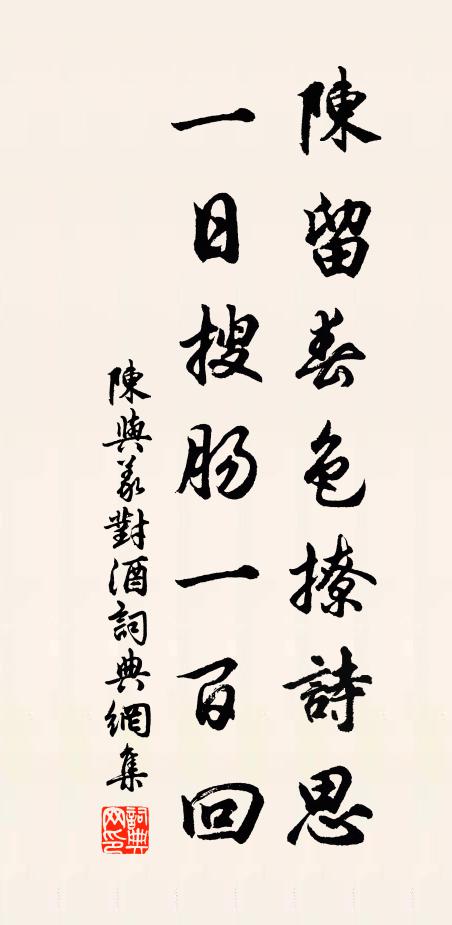 陳留春色撩詩思
一日搜肠一百回
陳與義對酒詞典網集
詞典網印